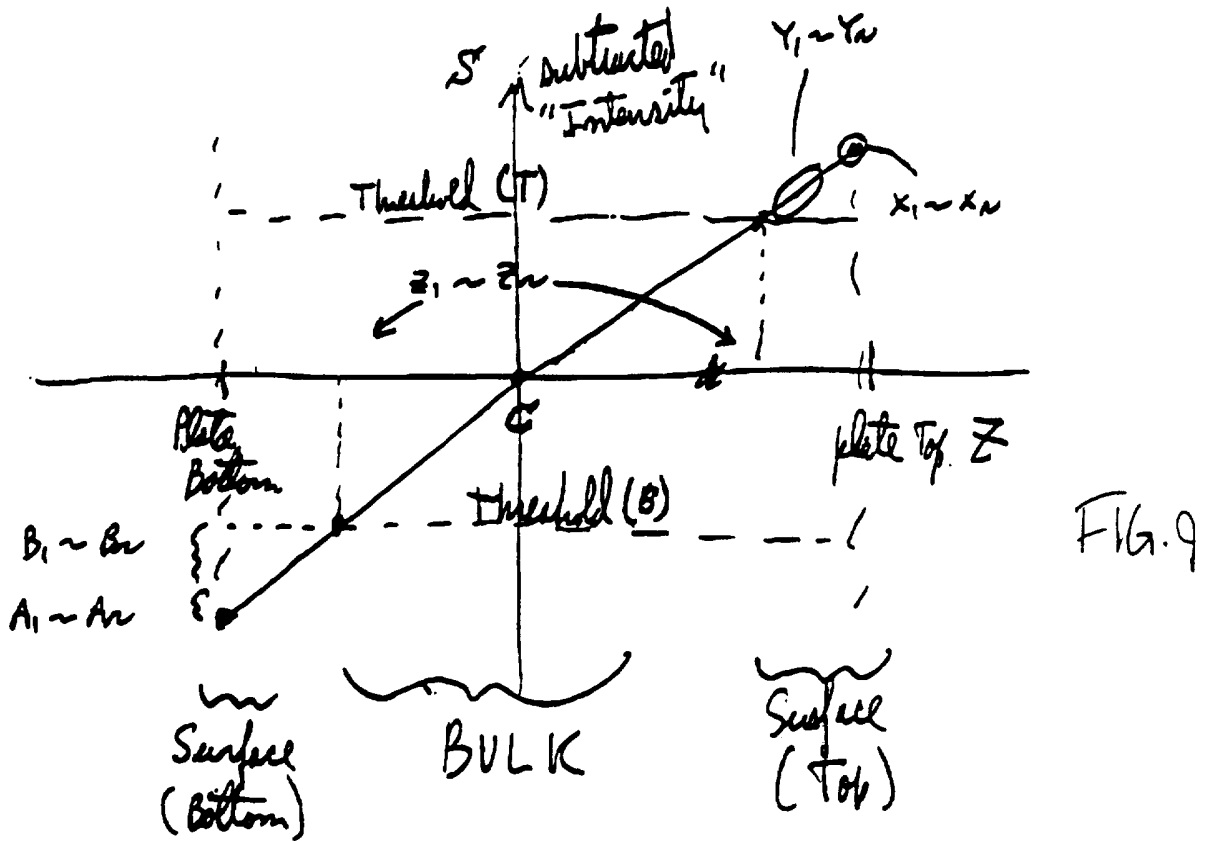 S subtracted
"Intensity"
Y₁ ~ Y_N
Threshold (T)
X₁ ~ X_N
Z₁ ~ Z_N
C
Plate
Bottom
plate Top Z
Threshold (B)
B₁ ~ B_N
A₁ ~ A_N
FIG. 9
Surface
(Bottom)
BULK
Surface
(Top)